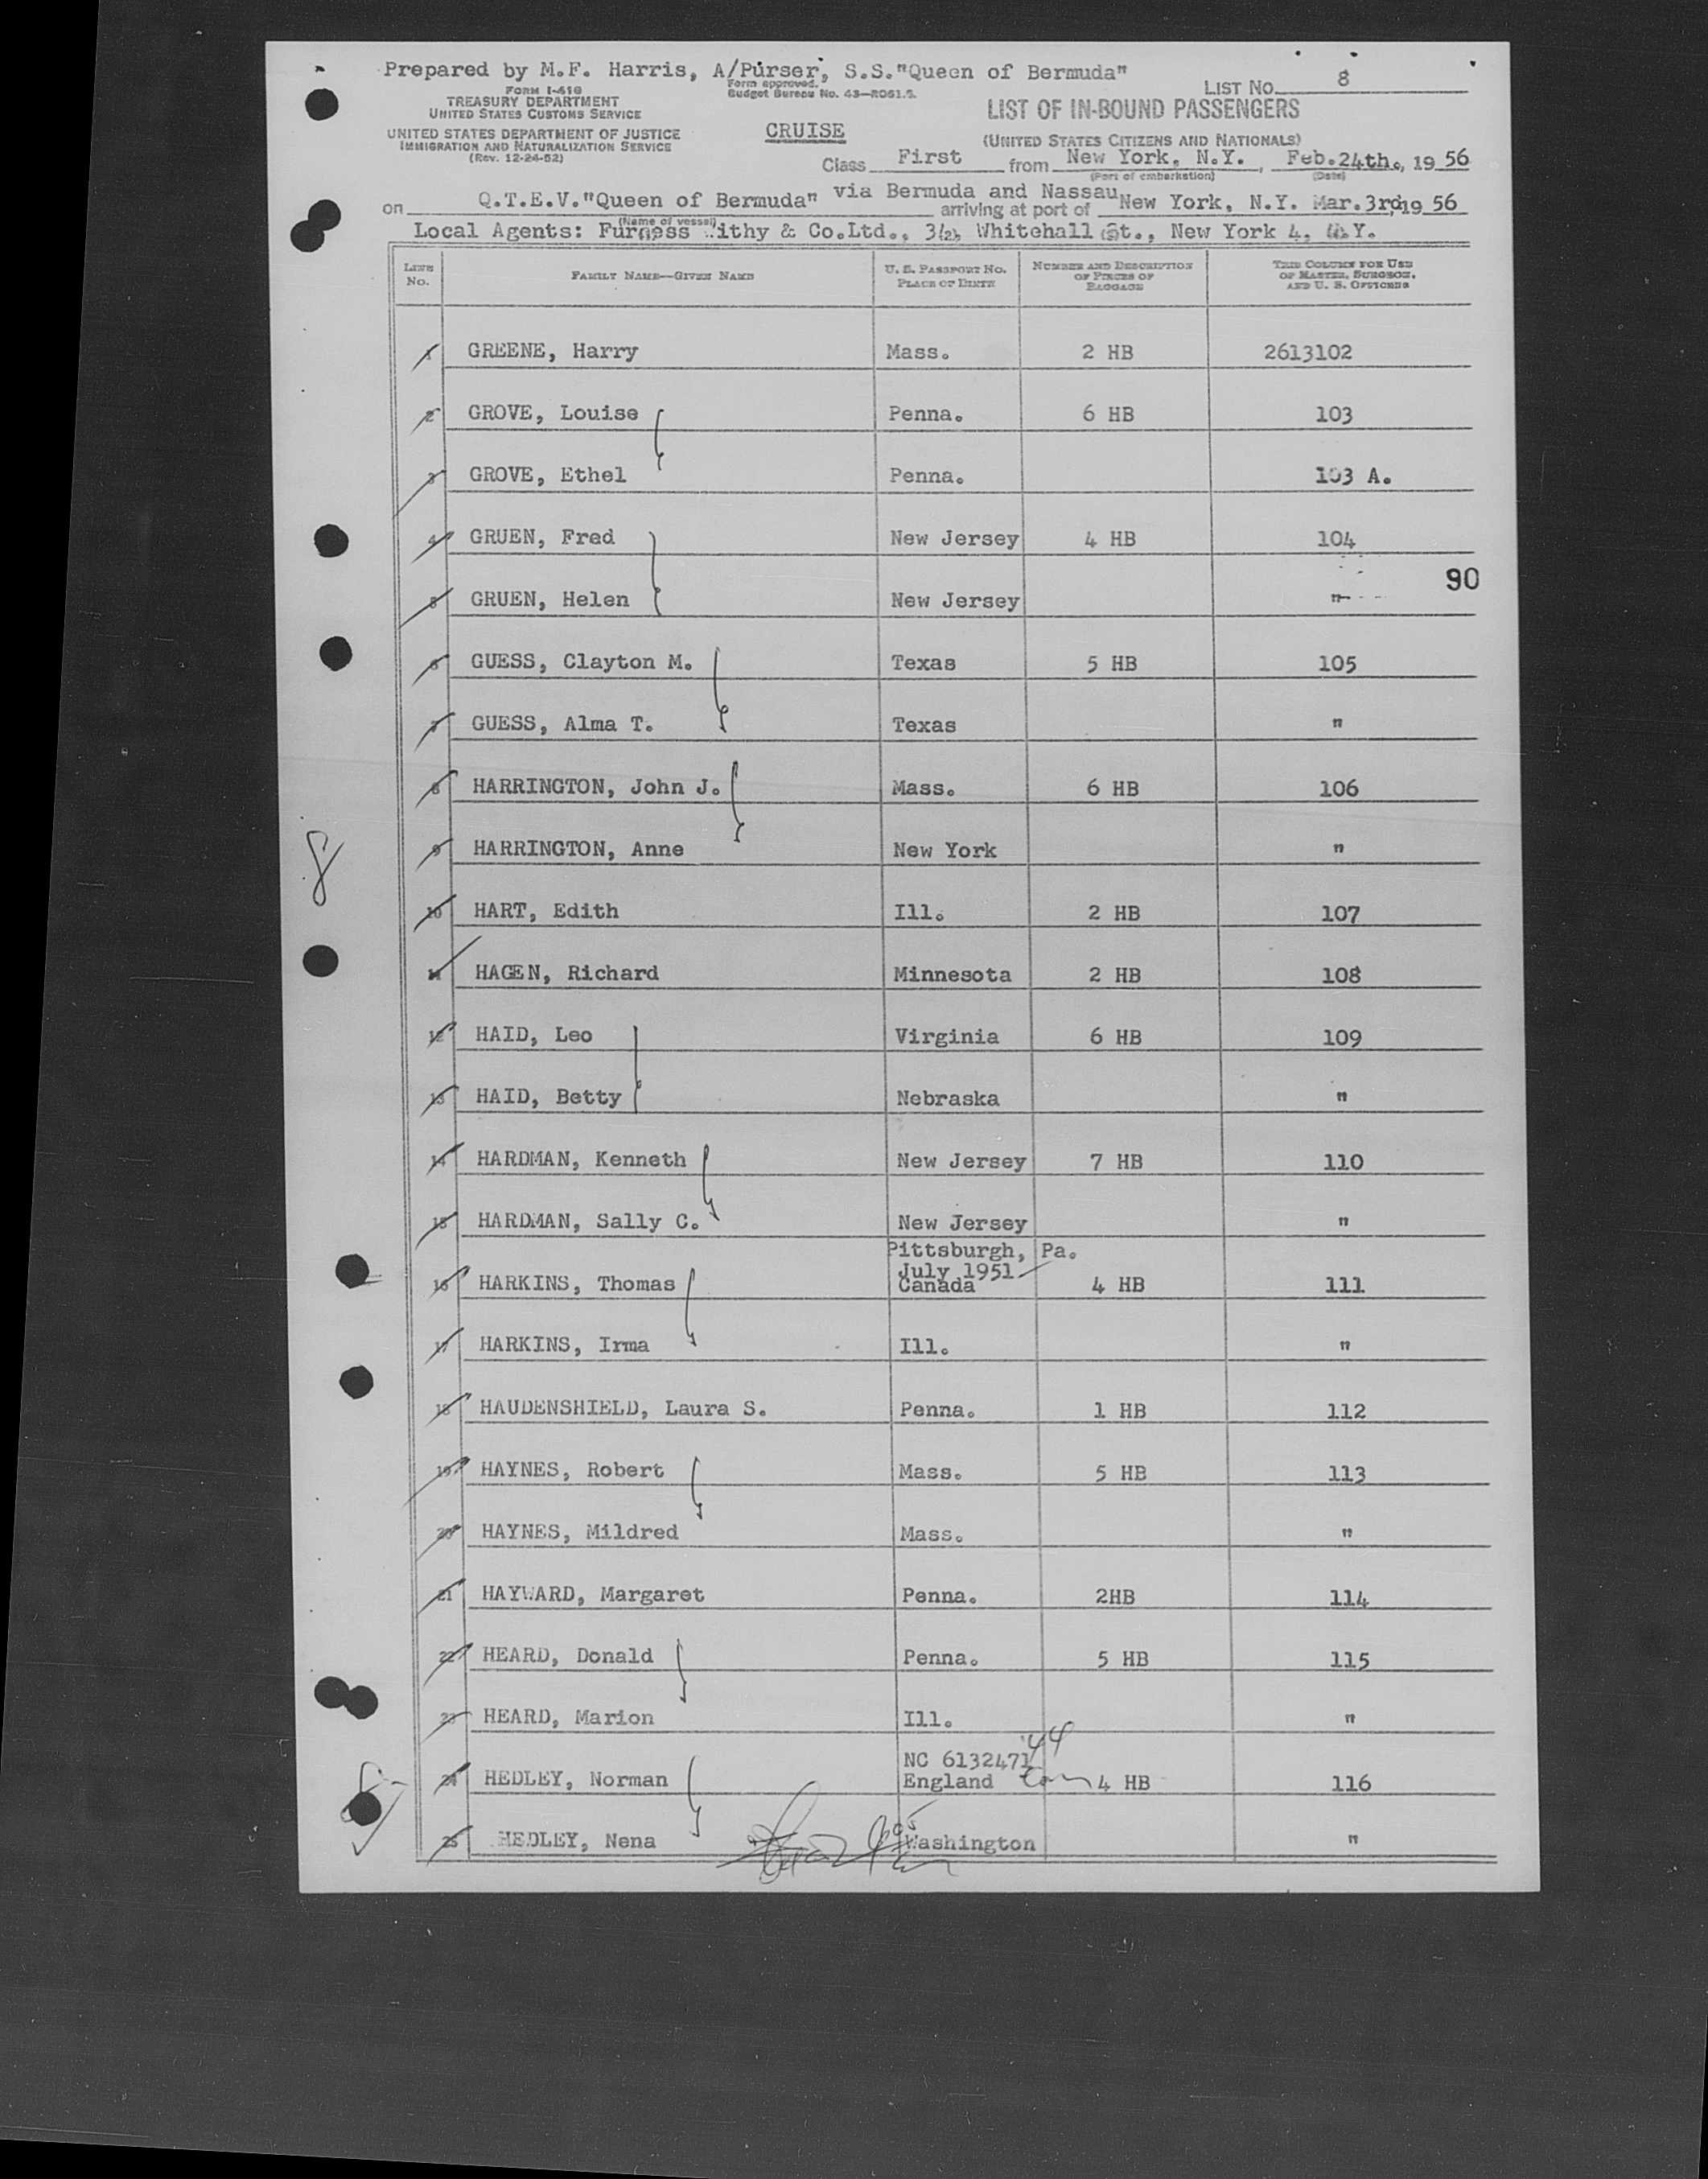 Prepared by M.F. Harris, A/Purser, S.S."Queen of Bermuda"
LIST No. 8
FORM I-418
TREASURY DEPARTMENT
UNITED STATES CUSTOMS SERVICE
UNITED STATES DEPARTMENT OF JUSTICE
IMMIGRATION AND NATURALIZATION SERVICE
(Rev. 12-24-52)
Form approved.
Budget Bureau No. 43—R061.5.
CRUISE
LIST OF IN-BOUND PASSENGERS
(UNITED STATES CITIZENS AND NATIONALS)
Class First from New York, N.Y., Feb.24th., 19 56
(Port of embarkation) (Date)
on Q.T.E.V."Queen of Bermuda" via Bermuda and Nassau arriving at port of New York, N.Y. Mar.3rd, 19 56
(Name of vessel)
Local Agents: Furness Withy & Co.Ltd., 34, Whitehall St., New York 4, N.Y.
LINE No. FAMILY NAME—GIVEN NAME U. S. PASSPORT NO. PLACE OF BIRTH NUMBER AND DESCRIPTION OF PIECES OF BAGGAGE THIS COLUMN FOR USE OF MASTER, SURGEON, AND U. S. OFFICERS
1 GREENE, Harry Mass. 2 HB 2613102
2 GROVE, Louise Penna. 6 HB 103
3 GROVE, Ethel Penna. 103 A.
4 GRUEN, Fred New Jersey 4 HB 104
90
5 GRUEN, Helen New Jersey "
6 GUESS, Clayton M. Texas 5 HB 105
7 GUESS, Alma T. Texas "
8 HARRINGTON, John J. Mass. 6 HB 106
8
9 HARRINGTON, Anne New York "
10 HART, Edith Ill. 2 HB 107
11 HAGEN, Richard Minnesota 2 HB 108
12 HAID, Leo Virginia 6 HB 109
13 HAID, Betty Nebraska "
14 HARDMAN, Kenneth New Jersey 7 HB 110
15 HARDMAN, Sally C. New Jersey "
Pittsburgh, Pa.
July 1951
16 HARKINS, Thomas Canada 4 HB 111
17 HARKINS, Irma Ill. "
18 HAUDENSHIELD, Laura S. Penna. 1 HB 112
19 HAYNES, Robert Mass. 5 HB 113
20 HAYNES, Mildred Mass. "
21 HAYWARD, Margaret Penna. 2HB 114
22 HEARD, Donald Penna. 5 HB 115
23 HEARD, Marion Ill. "
NC 6132471 '44
24 HEDLEY, Norman England 4 HB 116
25 HEDLEY, Nena Washington "